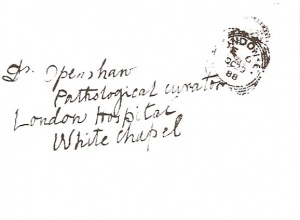 LONDON E
6
OC 29
88
Dr. Openshaw
Pathological curator
London Hospital
White chapel